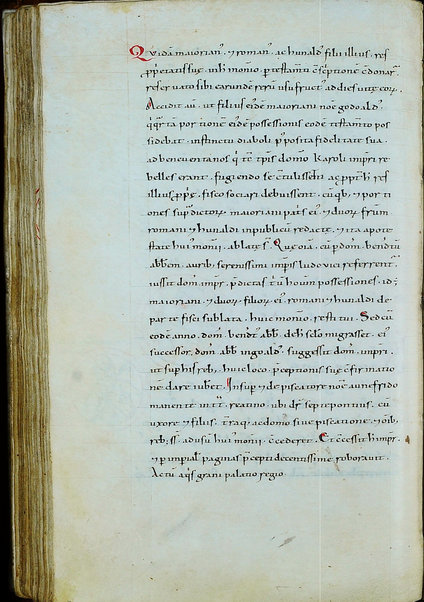 Quidā maiorian'. & roman'. ac hunald' filii illius. res
p̄p̄etatis suę. in h̄ monrio. p̄ testam̄tū c̄scptione c̄donar̄.
reseruato sibi earunde rerū usufructu. ad dies uitę eor̄.
Accidit aū. ut filius eidē maioriani noē godoald'.
q̄q̄rtā portionē eidē possessionis eodē testam̄to pos
sidebat. instinctu diaboli p̄posita fidelitate sua.
ad beneuentanos q̄ tē tp̄is domō karoli imp̄ri re
belles erant. fugiendo se c̄tulisset. ac pp̄t h̄ res
illius p̄p̄ę. fisco sociari debuissent. cūq̄ & por ti
ones sup̄dictor̄. maioriani patis ei'. & duor̄ fr̄um
romani & hunaldi in publicū redactę. & ita a pote
state hui' monrii. ablatę s̄. Quę oīa. cū p̄dom̄. bened'tū
abb̄em. aurib; serenissimi imp̄is ludouici referrent̄.
iussit dom̄. imp̄r. p̄dictas t̄ū hom̄ possessiones. id;
maioriani. & duor̄. filior̄ ei'. romani & hunaldi de
parte fisci sublata. huic monrio. restitui. Sed cū
eodē anno. dom̄. bened't' abb̄. de h̄ sclo migrasset. ei'
successor. dom̄. abb̄ ingoald'. suggessit dom̄. imp̄ri.
ut sup̄ his reb;. huic loco. p̄ceptionis suę c̄firmatio
nē dare iubet̄. Insup̄ & de piscatore noē aunefrido
manente in t̄t. reatino. ubi dr̄ septēpontius. cū
uxore & filiis. t̄raq̄ ac domo. siue piscatione. & oīb;
reb; ss̄. ad usū hui' monrii. c̄cederet̄. Et c̄cessit h̄ imp̄r.
& p̄ imp̄ial' paginas p̄cepti decentissime roborauit.
Actū aq̄s grani palatio regio